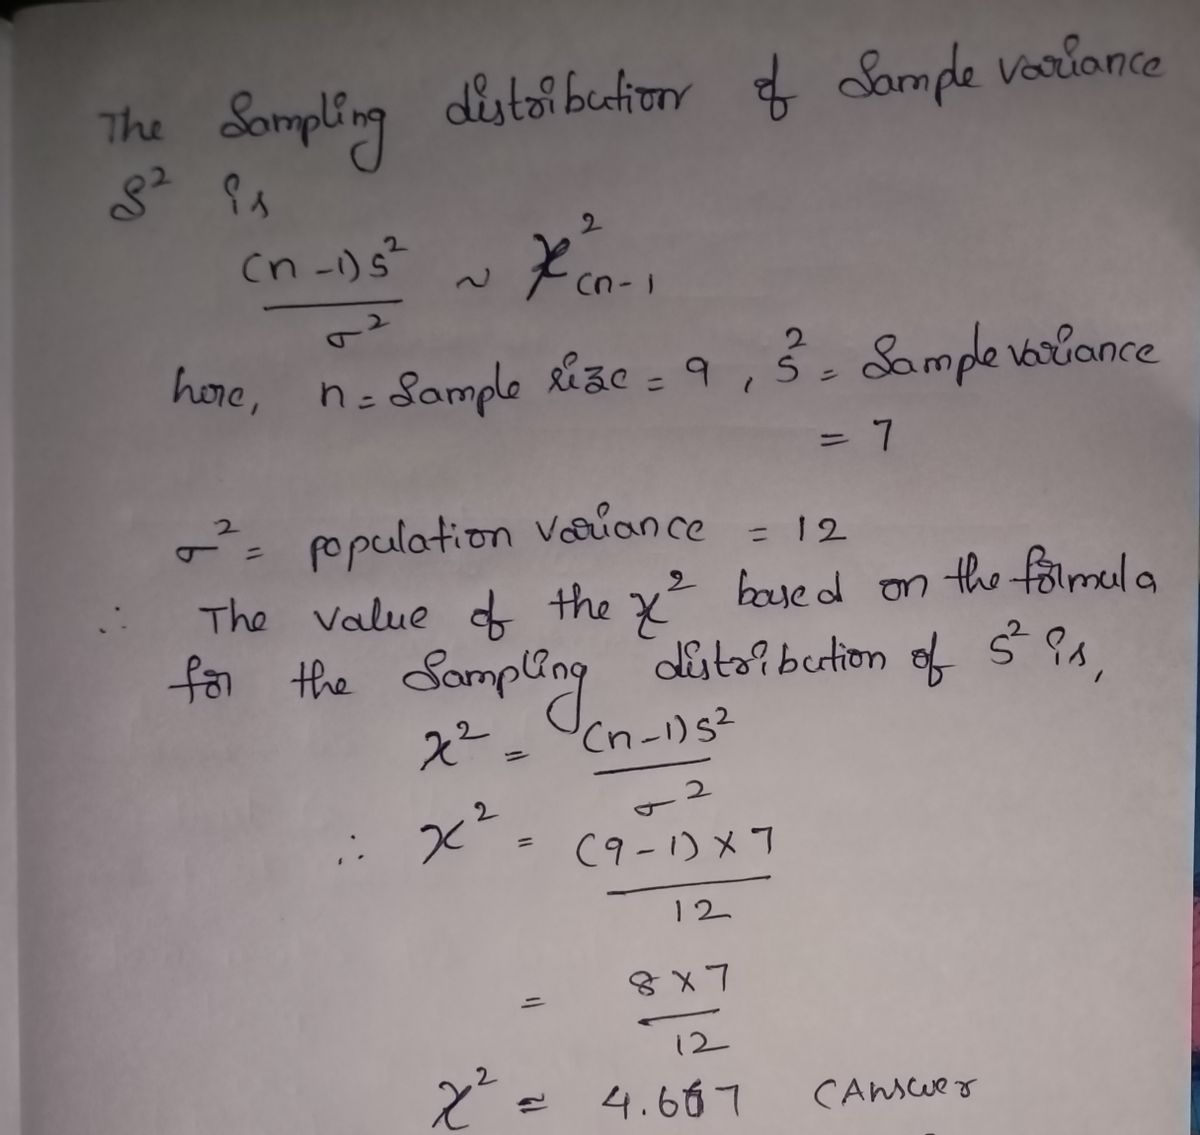 The Sampling distribution of Sample variance
S² is
(n-1)s²
σ²
~ χ²(n-1
here, n = Sample size = 9 , s² = Sample variance
= 7
σ² = population variance = 12
∴ The value of the χ² based on the formula
for the Sampling distribution of s² is,
χ² = (n-1)s²
σ²
∴ χ² = (9-1) × 7
12
= 8 × 7
12
χ² = 4.667 (Answer